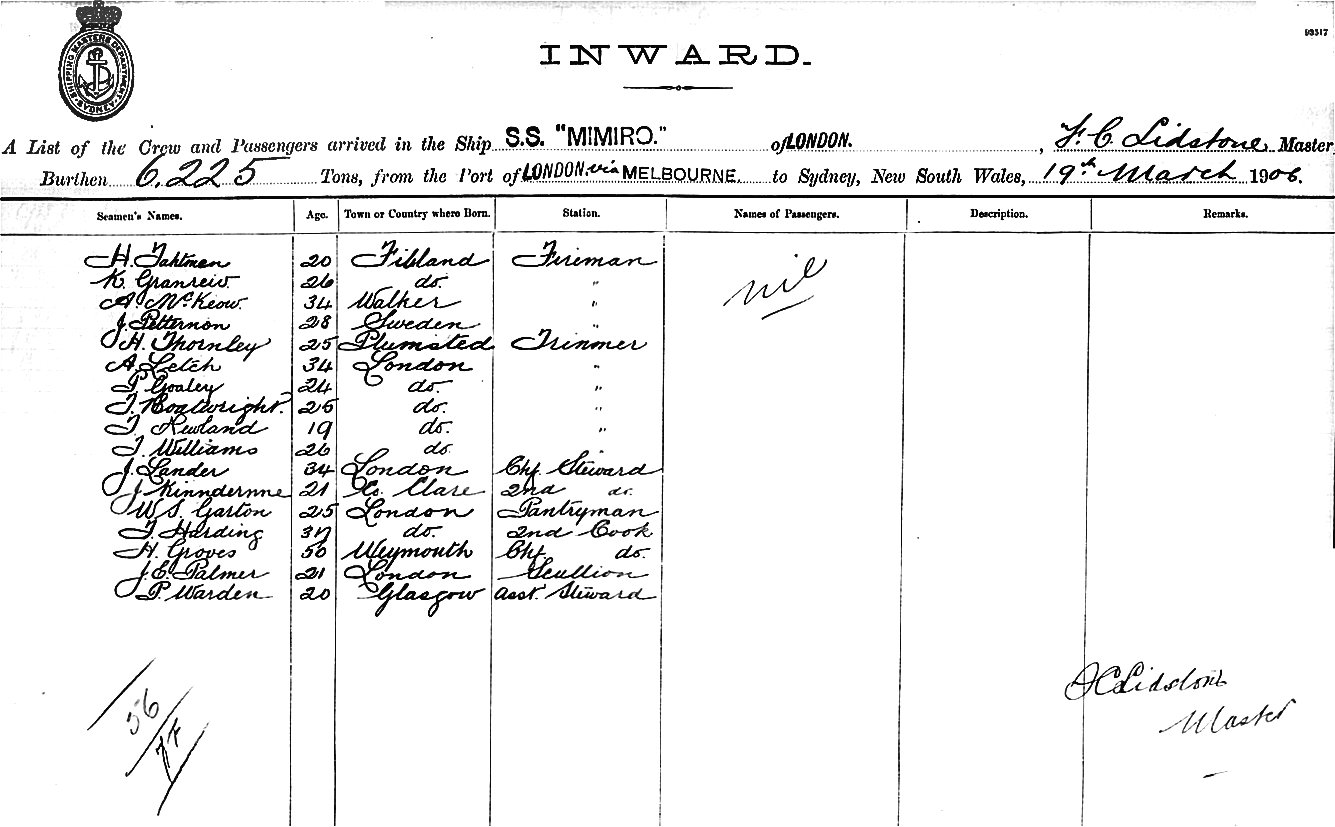 SHIPPING MASTERS DEPARTMENT SYDNEY
93517
INWARD.
A List of the Crew and Passengers arrived in the Ship S.S. "MIMIRO." of LONDON. , F. C. Lidstone, Master
Burthen 6,225 Tons, from the Port of LONDON via MELBOURNE. to Sydney, New South Wales, 19th March 1906.
Seamen's Names. Age. Town or Country where Born. Station. Names of Passengers. Description. Remarks.
H. Tahtmen 20 Finland Fireman nil
K. 26 do. "
A. McKeow. 34 Walker "
J. Petternon 28 Sweden "
H. Thornley 25 Plumsted Trimmer
A. Letch 34 London "
P. Goaley 24 do. "
T. Boatwright. 25 do. "
T. Newland 19 do. "
T. Williams 26 do.
J. Lander 34 London Chf. Steward
J. Kinndernne 21 Co. Clare 2nd do.
W. S. Garton 25 London Pantryman
T. Harding 37 do. 2nd Cook
H. Groves 50 Weymouth Chf. do.
J. E. Palmer 21 London Scullion
P. Warden 20 Glasgow asst. Steward
56
77
F C Lidstone
Master